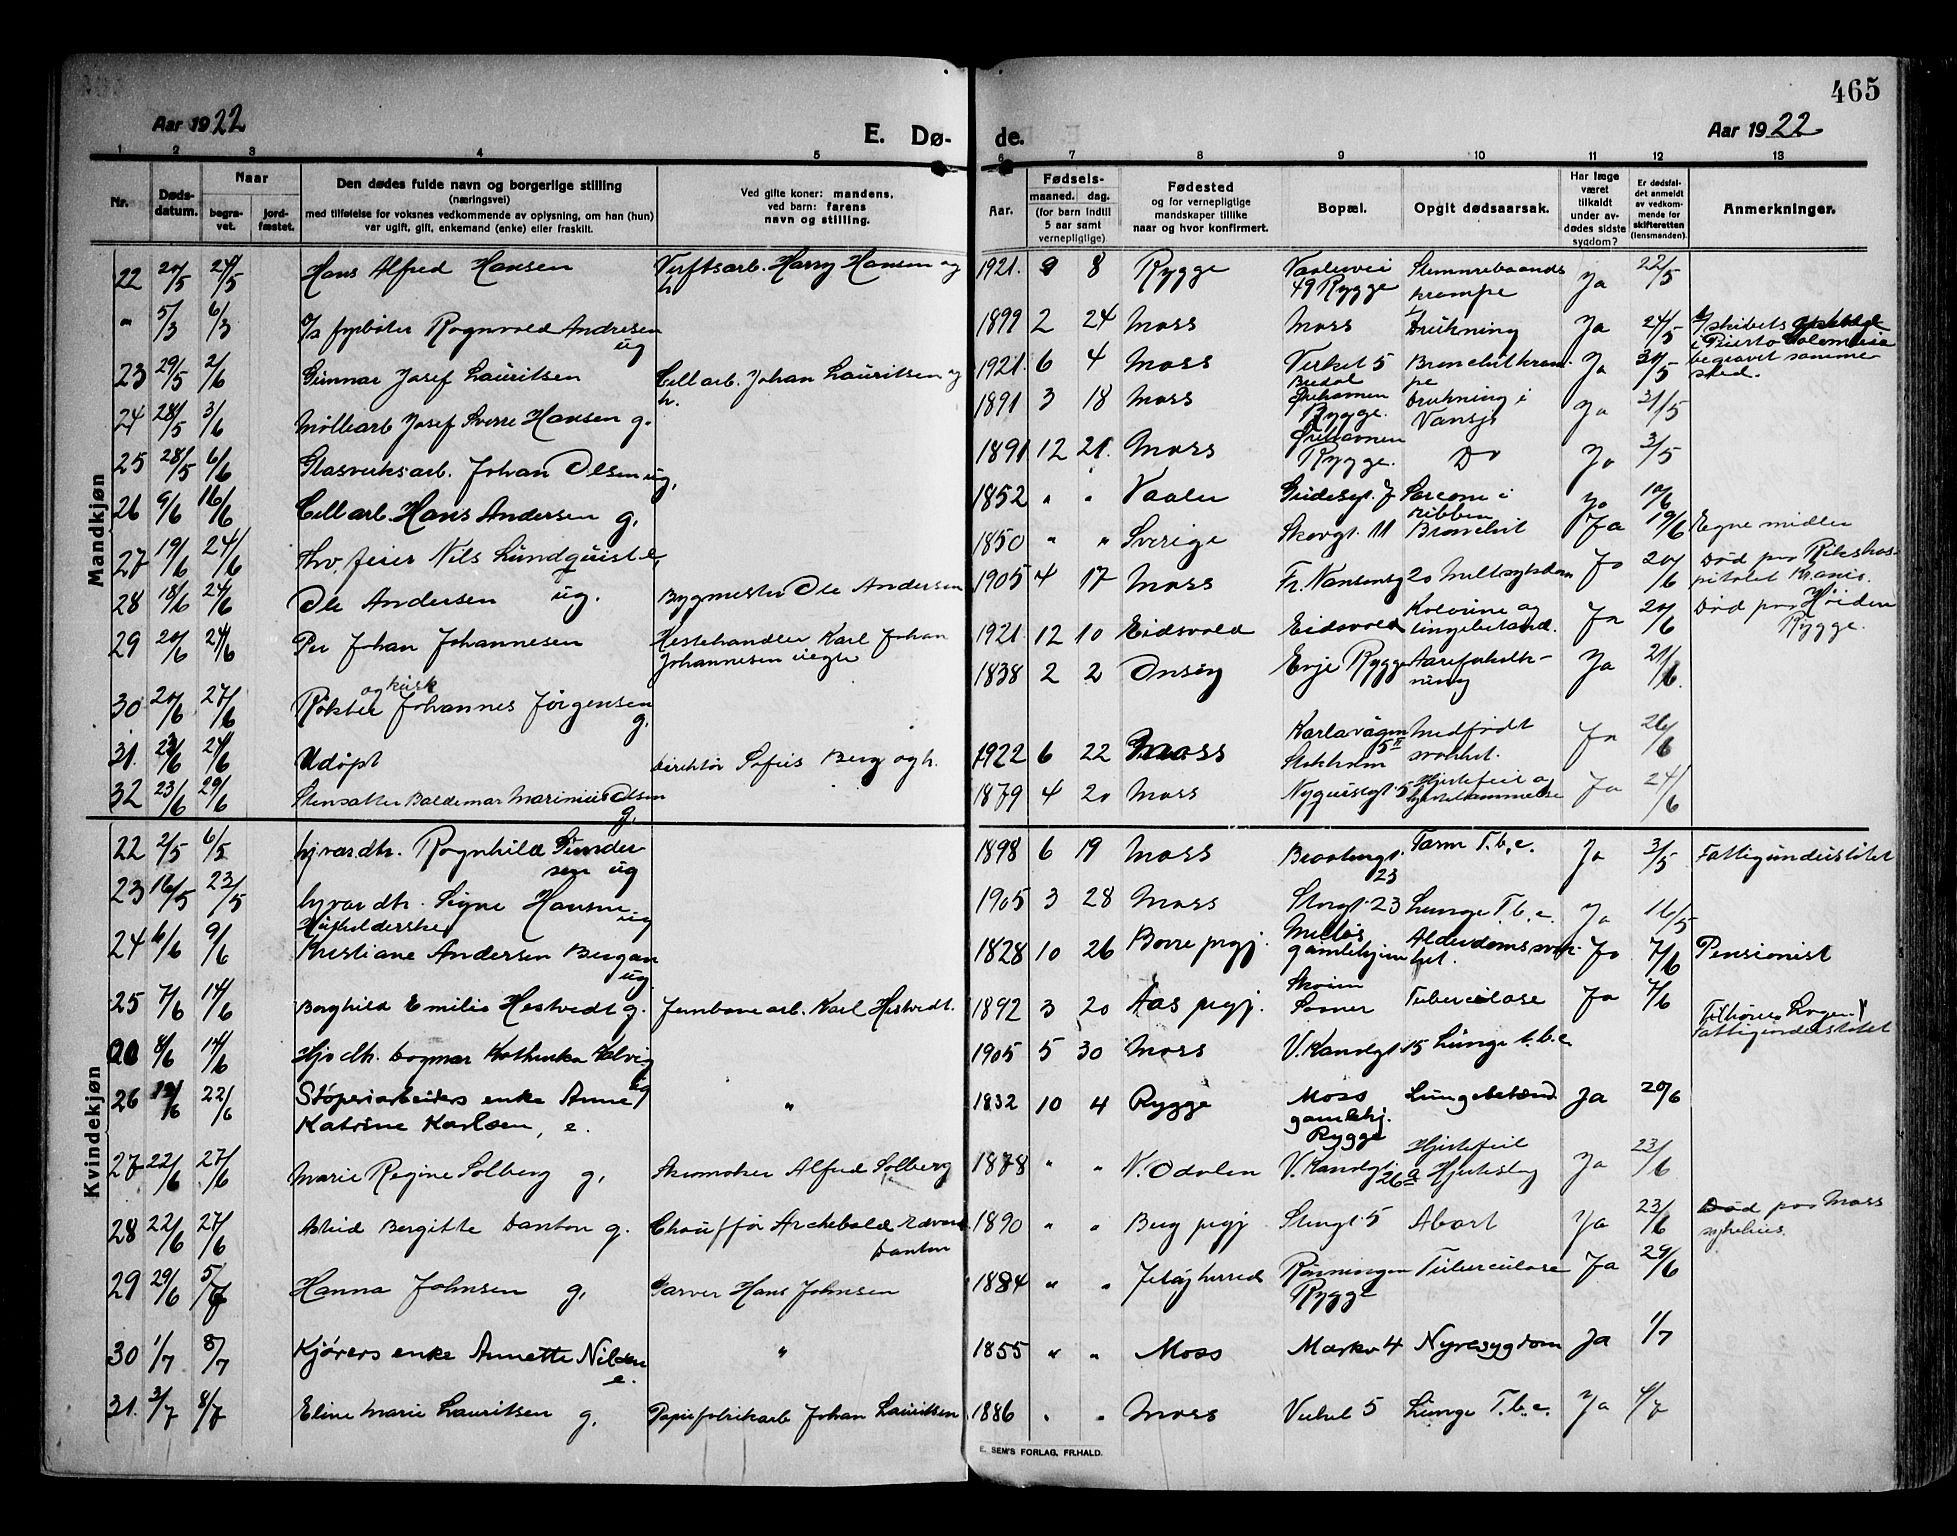 465
Aar 1922
E. Dø-
de.
Aar 1922
1 2 3 4 5 6 7 8 9 10 11 12 13
Nr.
Døds-
datum.
Naar
begra-
vet.
jord-
fæstet.
Den dødes fulde navn og borgerlige stilling
(næringsvei)
med tilføielse for voksnes vedkommende av oplysning, om han (hun)
var ugift, gift, enkemand (enke) eller fraskilt.
Ved gifte koner: mandens,
ved barn: farens
navn og stilling.
Aar.
Fødsels-
maaned. dag.
(for barn indtil
5 aar samt
vernepligtige)
Fødested
og for vernepligtige
mandskaper tillike
naar og hvor konfirmert.
Bopæl.
Opgit dødsaarsak.
Har læge
været
tilkaldt
under av-
dødes sidste
sygdom?
Er dødsfal-
det anmeldt
av vedkom-
mende for
skifteretten
(lensmanden).
Anmerkninger.
Mandkjøn
22 20/5 24/5 Hans Alfred Hansen Verftsarb. Harry Hansen og h 1921. 9 8 Rygge Vaaleveii 49 Rygge Stemmebaands krampe Ja 22/5
" 5/3 6/3 fyrbøter Ragnvald Andresen ug 1899 2 24 Moss Moss Drukning Ja 24/5 begravet samme sted.
23 29/5 2/6 Gunnar Josef Lauritsen Cellarb. Johan Lauritsen og h. 1921. 6 4 Moss Verket 5 Ja 30/5
24 28/5 3/6 Møllearb Josef Sverre Hansen g. 1891 3 18 Moss Rygge. Drukning i Vansjø Ja 31/5
25 28/5 6/6 Glasverksarb. Johan Olsen ug, 1891 12 21. Moss Rygge. Do Ja 3/5
26 9/6 16/6 Cellarb. Hans Andersen g, 1852 " " Vaaler Sarcom i ribben Ja 10/6
27 19/6 24/6 feier Nils Lundquist e, 1850 " " Sverige Skovgt. 11 Bronchit Ja 19/6 Egne midler
28 18/6 24/6 Ole Andersen ug. Bygmester Ole Andersen 1905 4 17 Moss Fr. Nansensg 20 Ja 20/6 Død paa Rikshos- pitalet Krania.
29 20/6 24/6 Per Johan Johannesen Hestehandler Karl Johan Johannesen 1921. 12 10 Eidsvold Eidsvold Ja 20/6 Død paa Høiden Rygge.
30 20/6 27/6 Røkter og kusk Johannes Jørgensen g, 1838 2 2 Onsøy Evje Rygge Aareforkalk- ning Ja 21/6.
31. 23/6 24/6 Udøpt Direktør Sofus Berg og h. 1922 6 22 Moss Karlavägen 5 II Stokholm Medfødt svakhet. Ja 26/6
32 23/6 29/6 Stensætter Baldemar Marinius Olsen g, 1879 4 20 Moss Nyquistgt. 5 Hjertefeil og Ja 24/6
Kvindekjøn
22 2/5 6/5 hjværdtr. Ragnhild Gunder- sen ug 1898 6 19 Moss 23 Tarm T.b.c. Ja 3/5 Fattigunderstøtet
23 16/5 23/5 hjvar dtr. Signe Hansen ug 1905 3 28 Moss Storgt. 23 Lunge T.b.c. Ja 16/5
24 6/6 9/6 Husholderske Kristiane Andersen Bergan ug. 1828 10 26 Borre prgj. gamlehjem Alderdomssvak- het. Ja 7/6 Pensionist
25 7/6 14/6 Borghild Emilie Hestvedt g. Jernbanearb. Karl Hestvedt. 1892 3 20 Aas prgj. Skoim Soner Tuberculose Ja 7/6
8/6 14/6 Hjv dtr. Dagmar Kathinka Kalvig ug 1905 5 30 Moss V. Kanalgt 15 Lunge t.b.c Fattigunderstøtet
26 19/6 22/6 Støperiarbeiders enke Anne Katrine Karlsen, e. " 1832 10 4 Rygge Moss gamlehj. Rygge Lungebetænd. Ja 20/6
27 22/6 27/6 Marie Regine Solberg g, Skomaker Alfred Solberg 1878 " " N. Odalen V. Kanalgt. 26 a Hjertefeil Hjerteslag Ja 23/6
28 22/6 27/6 Astrid Bergitte Danton g. Chauffør Archebald Edvard Danton 1890 " " Berg prgj Stengt. 5 Abort Ja 23/6 Død paa Moss sykehus.
29 29/6 5/7 Hanna Johnsen g, Garver Hans Johnsen 1884 " " Jeløy herred Rønningen Rygge Tuberculose Ja 29/6
30 1/7 8/7 Kjørers enke Annette Nilsen e. " 1855 " " Moss Markv 4 Nyresygdom Ja 1/7
31. 3/7 8/7 Eline Marie Lauritsen g, Papirfabrikarb Johan Lauritsen 1886 " " Moss Verket 5 Lunge T.b.c. Ja 4/7
E. SEM'S FORLAG, FR.HALD.